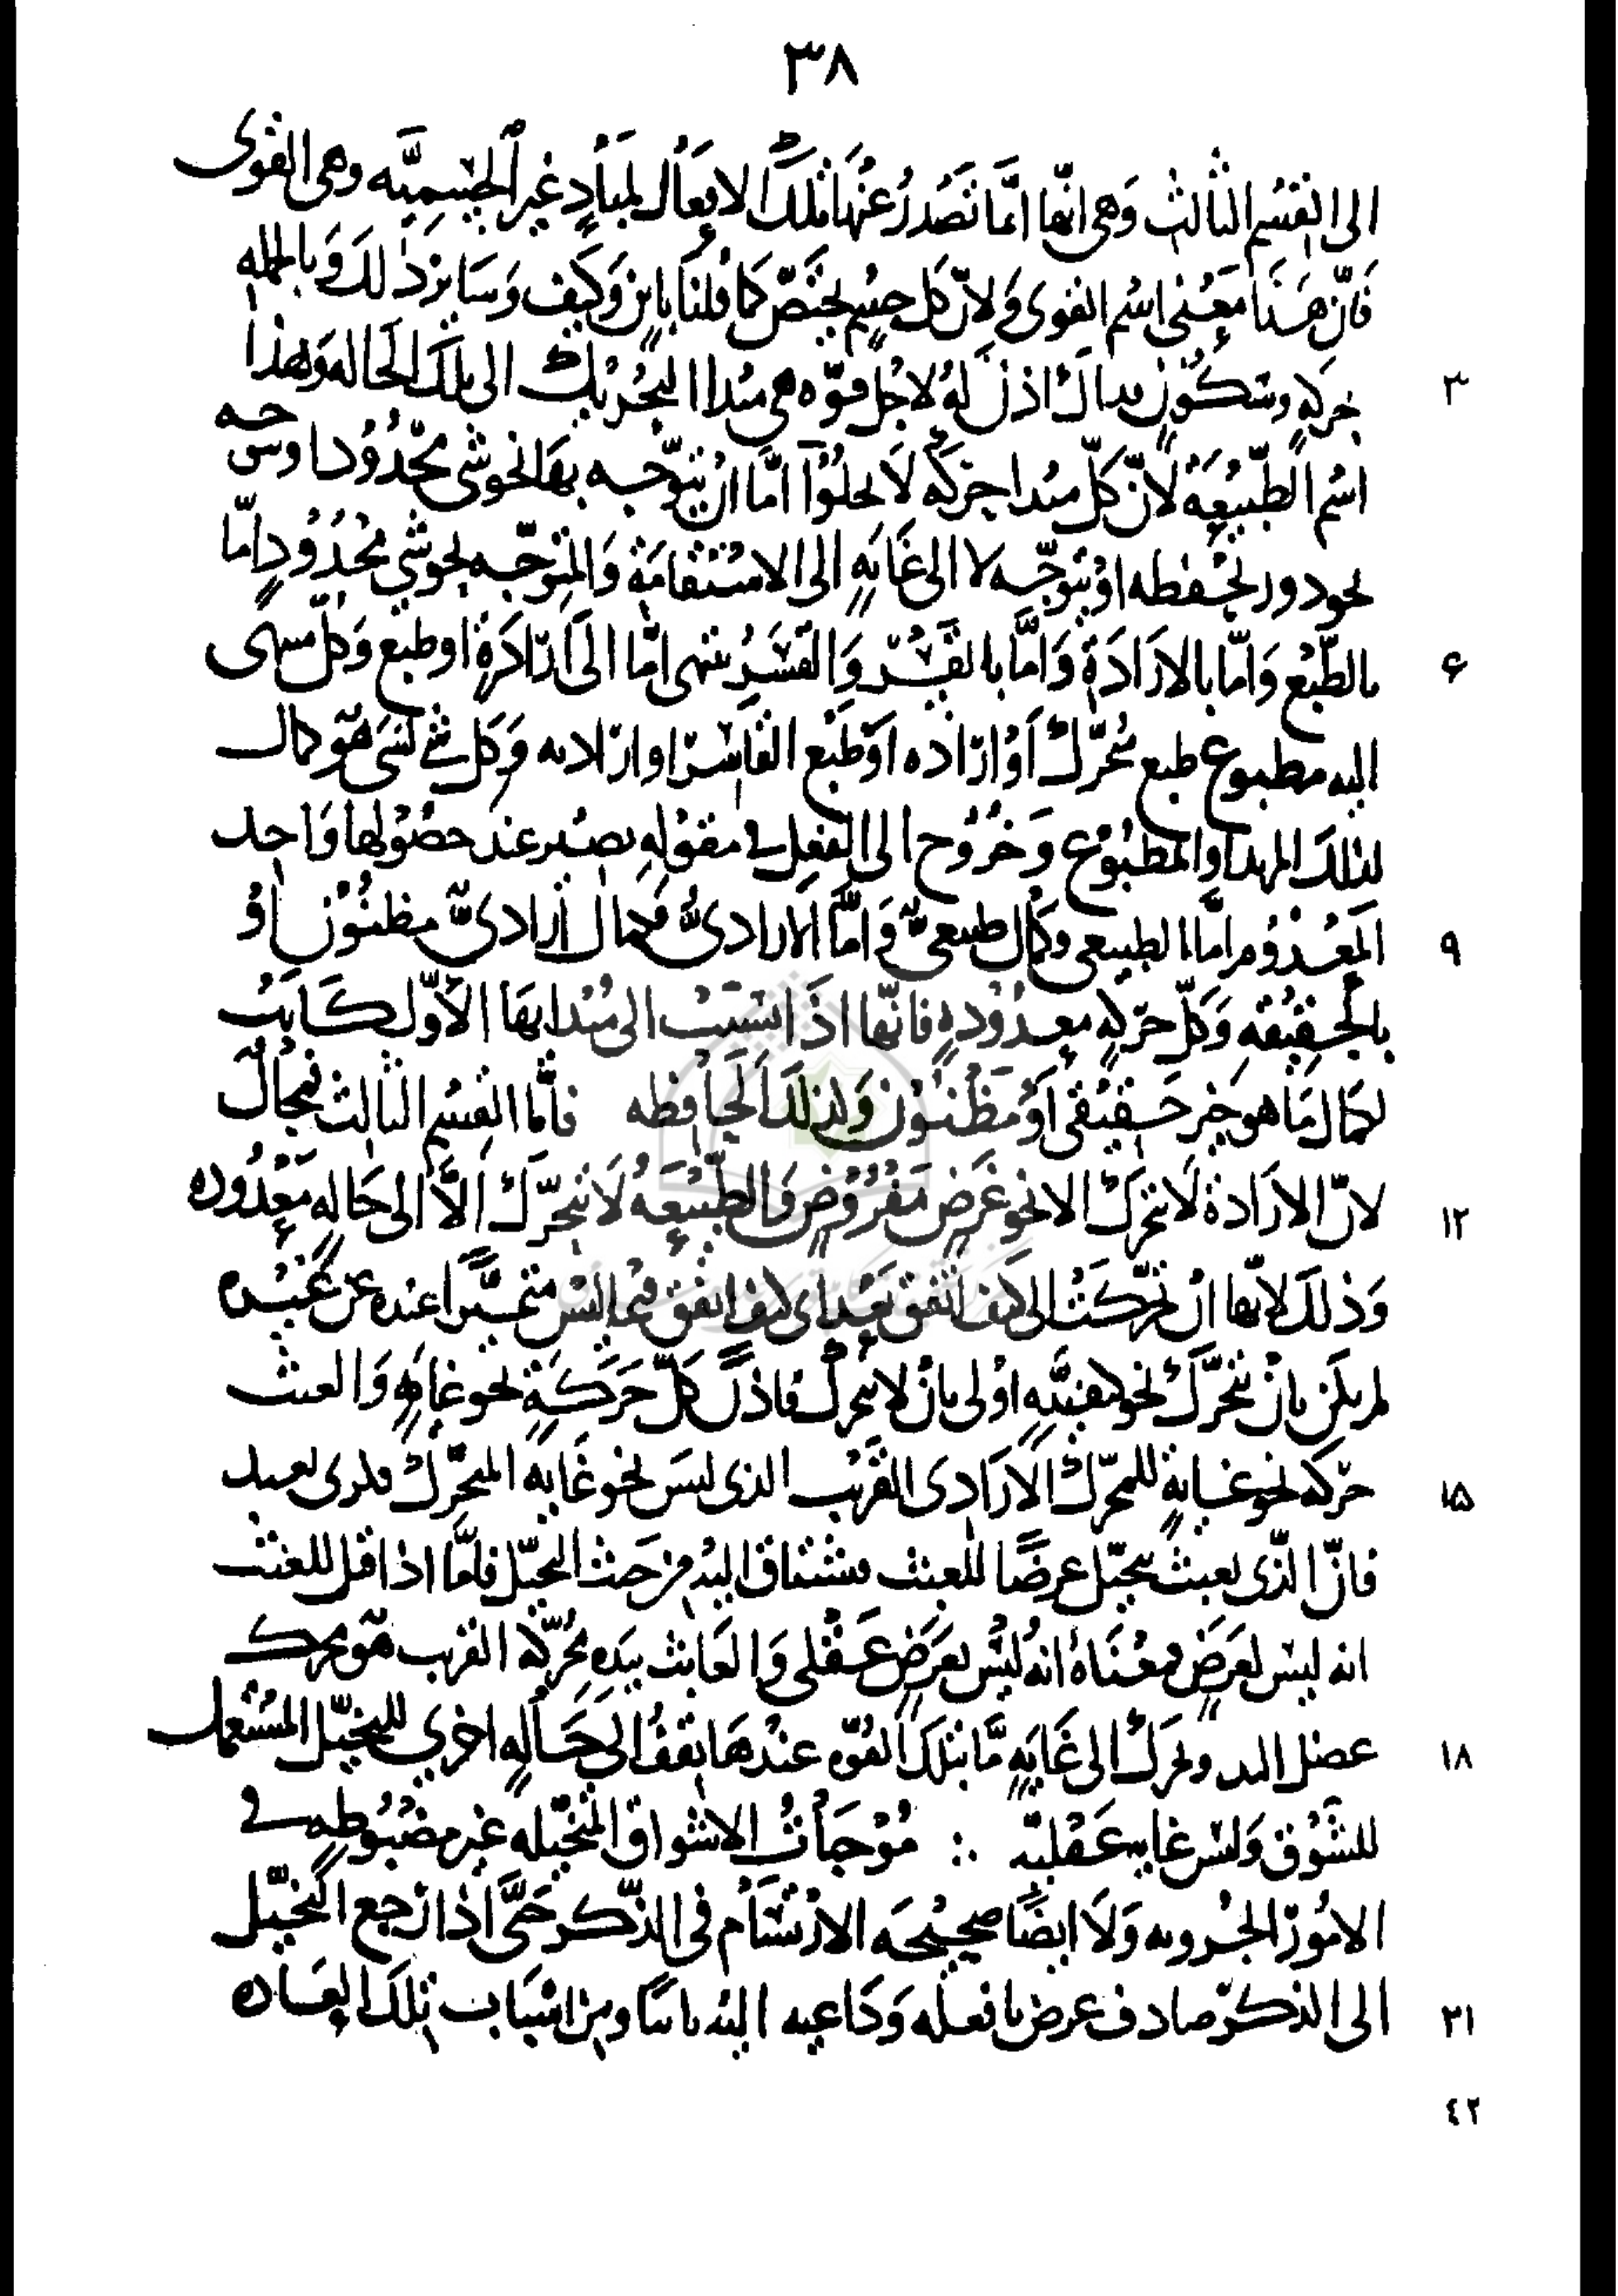 ٣٨
الى القسم الثالث وَهى انّها امَّا تَصْدُرُ عَنْهَا تلك الافعَال لمبَادٍ غير الجِسْمِيَّه وهى القوى
فَانّ هذَا مَعْنى اسْم القوى وَلانّ كل جسْمٍ يختصّ كما قلنا باين وَكيْف وَسَايرذلكَ وَبالجمله
٣ حركه وسكون له لاجْل قوّه هى مبدا التحْريك الى تلك الحَاله وَهذا
اسْم الطّبيْعَة لانّ كلّ مبدا حركه لَا يخلُوْا امَّا انْ يتوجّه بهَا نحو شى محْدُوْد او يتوجه
نحو دور يحْفظه اوْ يتوجّه لا الى غَايَهٍ الى الاسْتقامَة وَالمتوجّه نحو شىٍ محْدُوْدٍ امّا
۶ بالطّبْع وَامّا بالارَادَة وَامَّا بالقسْر وَالقَسْرُ ينتهى امّا الى ارَادَةٍ او طبع وَكل منتهى
اليه مطبوع طبع محرّك أوْ ارَاده اوْ طبْع القاسر او ارادته وَكل شئٍ ينتهى هو كمال
لذلك المبدا والمطبُوْع وَخُرُوْج الى الفعل فى مقوله يصير عند حصُوْلها وَاحد
٩ المعْدُوْم امَّا الطبيعى وكمال طبيعىّ وَامَّا الارادىُّ فكمال ارادىّ مظنُوْن اوْ
بالحقيْقه وَكلّ حركه معدُوْدهٍ فانّها اذَا نسبَتْ الى مبْدائهَا الاوّل كَانَتْ
لكمال مَا هو خير حَقيْقى اوْ مَظْنوْن وَلذلك الحَافظه فأمّا القسْم الثالث فمحَالٌ
١٢ لانّ الارَادة لَا تحرّك الا نحو غَرَضٍ مَفْرُوْضٍ وَالطّبيْعَه لَا تحرّك اَلَّا الى حَالهٍ مَعْدُوْده
وَذلكَ لانّها انْ تحرّكَتْ الى كيف اتفق بَعْد اى كيف اتفق فيما ليْس متميّزًا عنده عن غَيْره
لم يكن بانْ تتحَرَّك نحو كيفيَّهٍ اوْلى بانْ لا تتحرك فاذنْ كلّ حَرَكَةٍ نحو غَايَهٍ وَالعبث
١۵ حرّكه نحو غَايةٍ للمحرّك الارَادى القريْب الذى ليسَ نحو غَايه المحَرِّك بعيد
فانّ الذّى يعبث يتخيّل غرضًا للعبث فيشتاق اليْه من حَيث التخيّل فامَّا اذا قيل للعبث
انه ليسْ لغَرَضٍ فمعْنَاهُ انهُ ليْسَ لغَرَضٍ عَقْلى وَالعَابث بيَدِه محُرّكه القريب هو محرك
١٨ عضل اليد وتحرك الى غَايَهٍ مَّا بتلكَ القوّه عندْهَا يقفُ الى حَالهٍ اخرَى للتخيّل المسْتعمل
للشَّوْق وَليْس غايه عَقْليّه ∴ مُوْجبَاتُ الاشواق التّخيّله غير مضْبُوْطهٍ فى
الامُوْر الجزويه وَلَا ايضًا صحيْحَه الارْتسَام فى الذّكر حَتَّى اذا رجع التّخيّل
٢١ الى الذكرّ صادف غرض ما فعله وَدَاعيه اليْه ثابتا ومن اسْبَاب تلكَ العَاده
٤٢